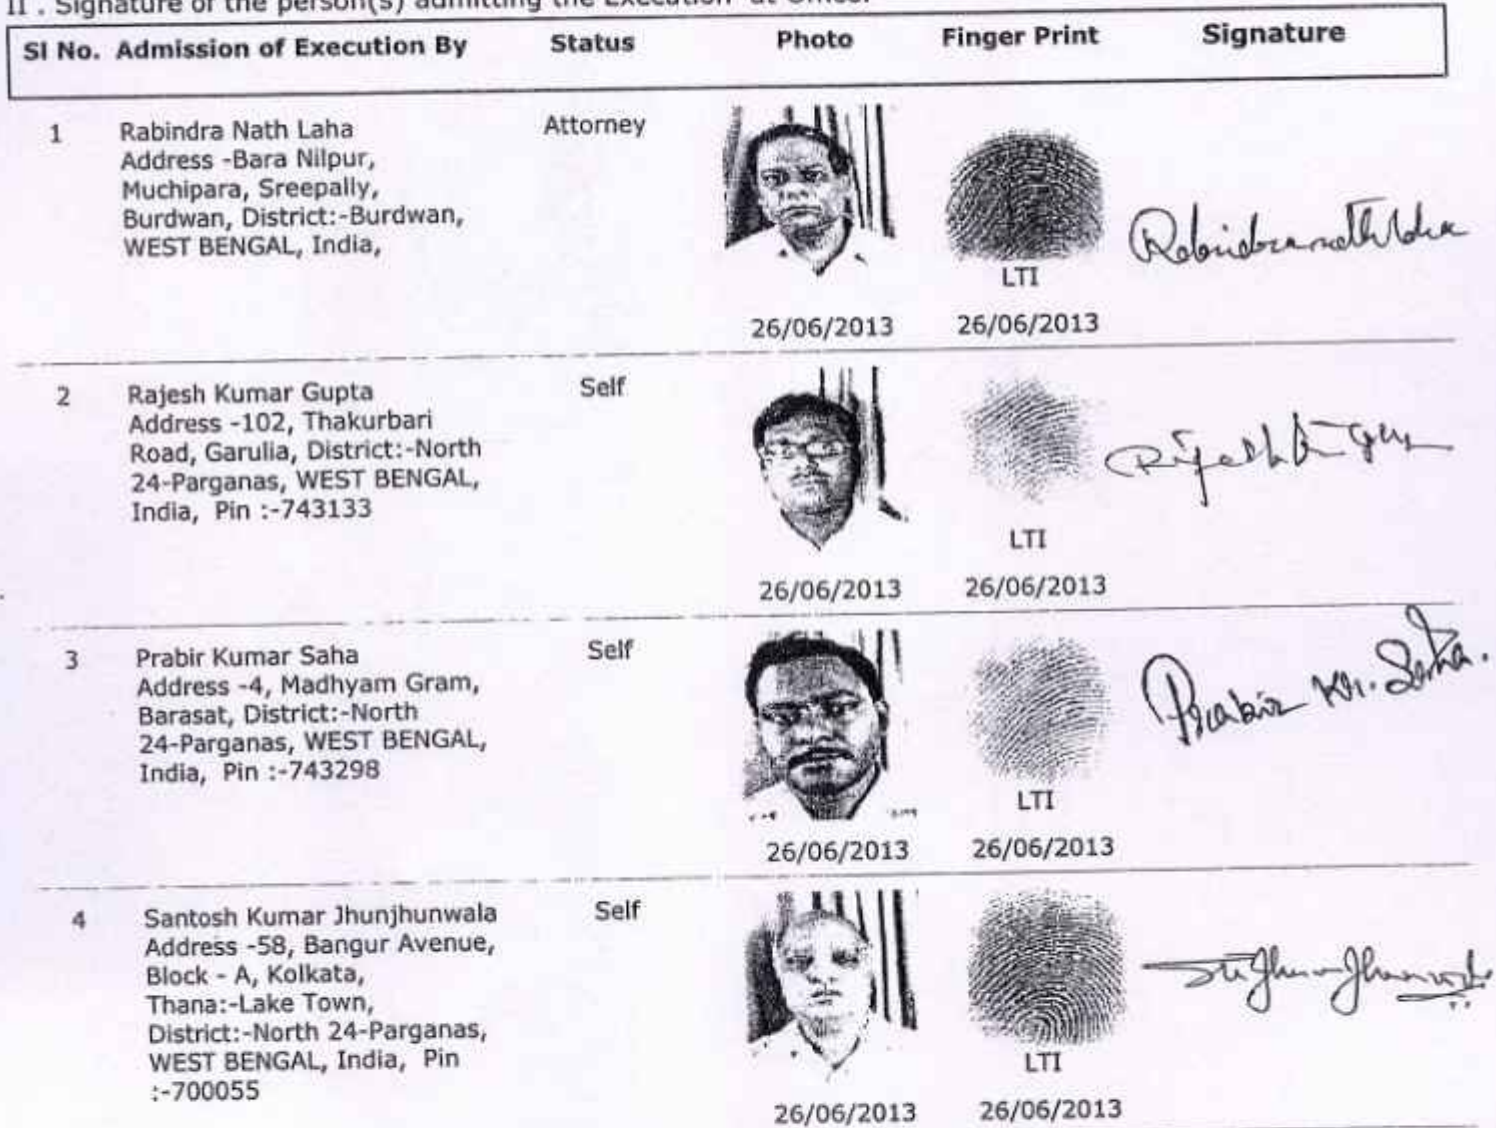 II . Signature of the person(s) admitting the Execution at Office.
Sl No. Admission of Execution By Status Photo Finger Print Signature
1 Rabindra Nath Laha Attorney
Address -Bara Nilpur,
Muchipara, Sreepally,
Burdwan, District:-Burdwan,
WEST BENGAL, India,
Rabindranath Laha
LTI
26/06/2013 26/06/2013
2 Rajesh Kumar Gupta Self
Address -102, Thakurbari
Road, Garulia, District:-North
24-Parganas, WEST BENGAL,
India, Pin :-743133
LTI
26/06/2013 26/06/2013
3 Prabir Kumar Saha Self
Address -4, Madhyam Gram,
Barasat, District:-North
24-Parganas, WEST BENGAL,
India, Pin :-743298
Prabir Kr. Saha.
LTI
26/06/2013 26/06/2013
4 Santosh Kumar Jhunjhunwala Self
Address -58, Bangur Avenue,
Block - A, Kolkata,
Thana:-Lake Town,
District:-North 24-Parganas,
WEST BENGAL, India, Pin
:-700055
LTI
26/06/2013 26/06/2013